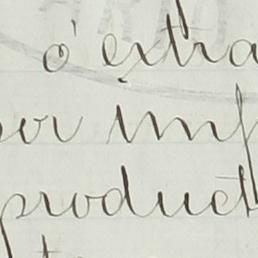 ó extra
por imp
product